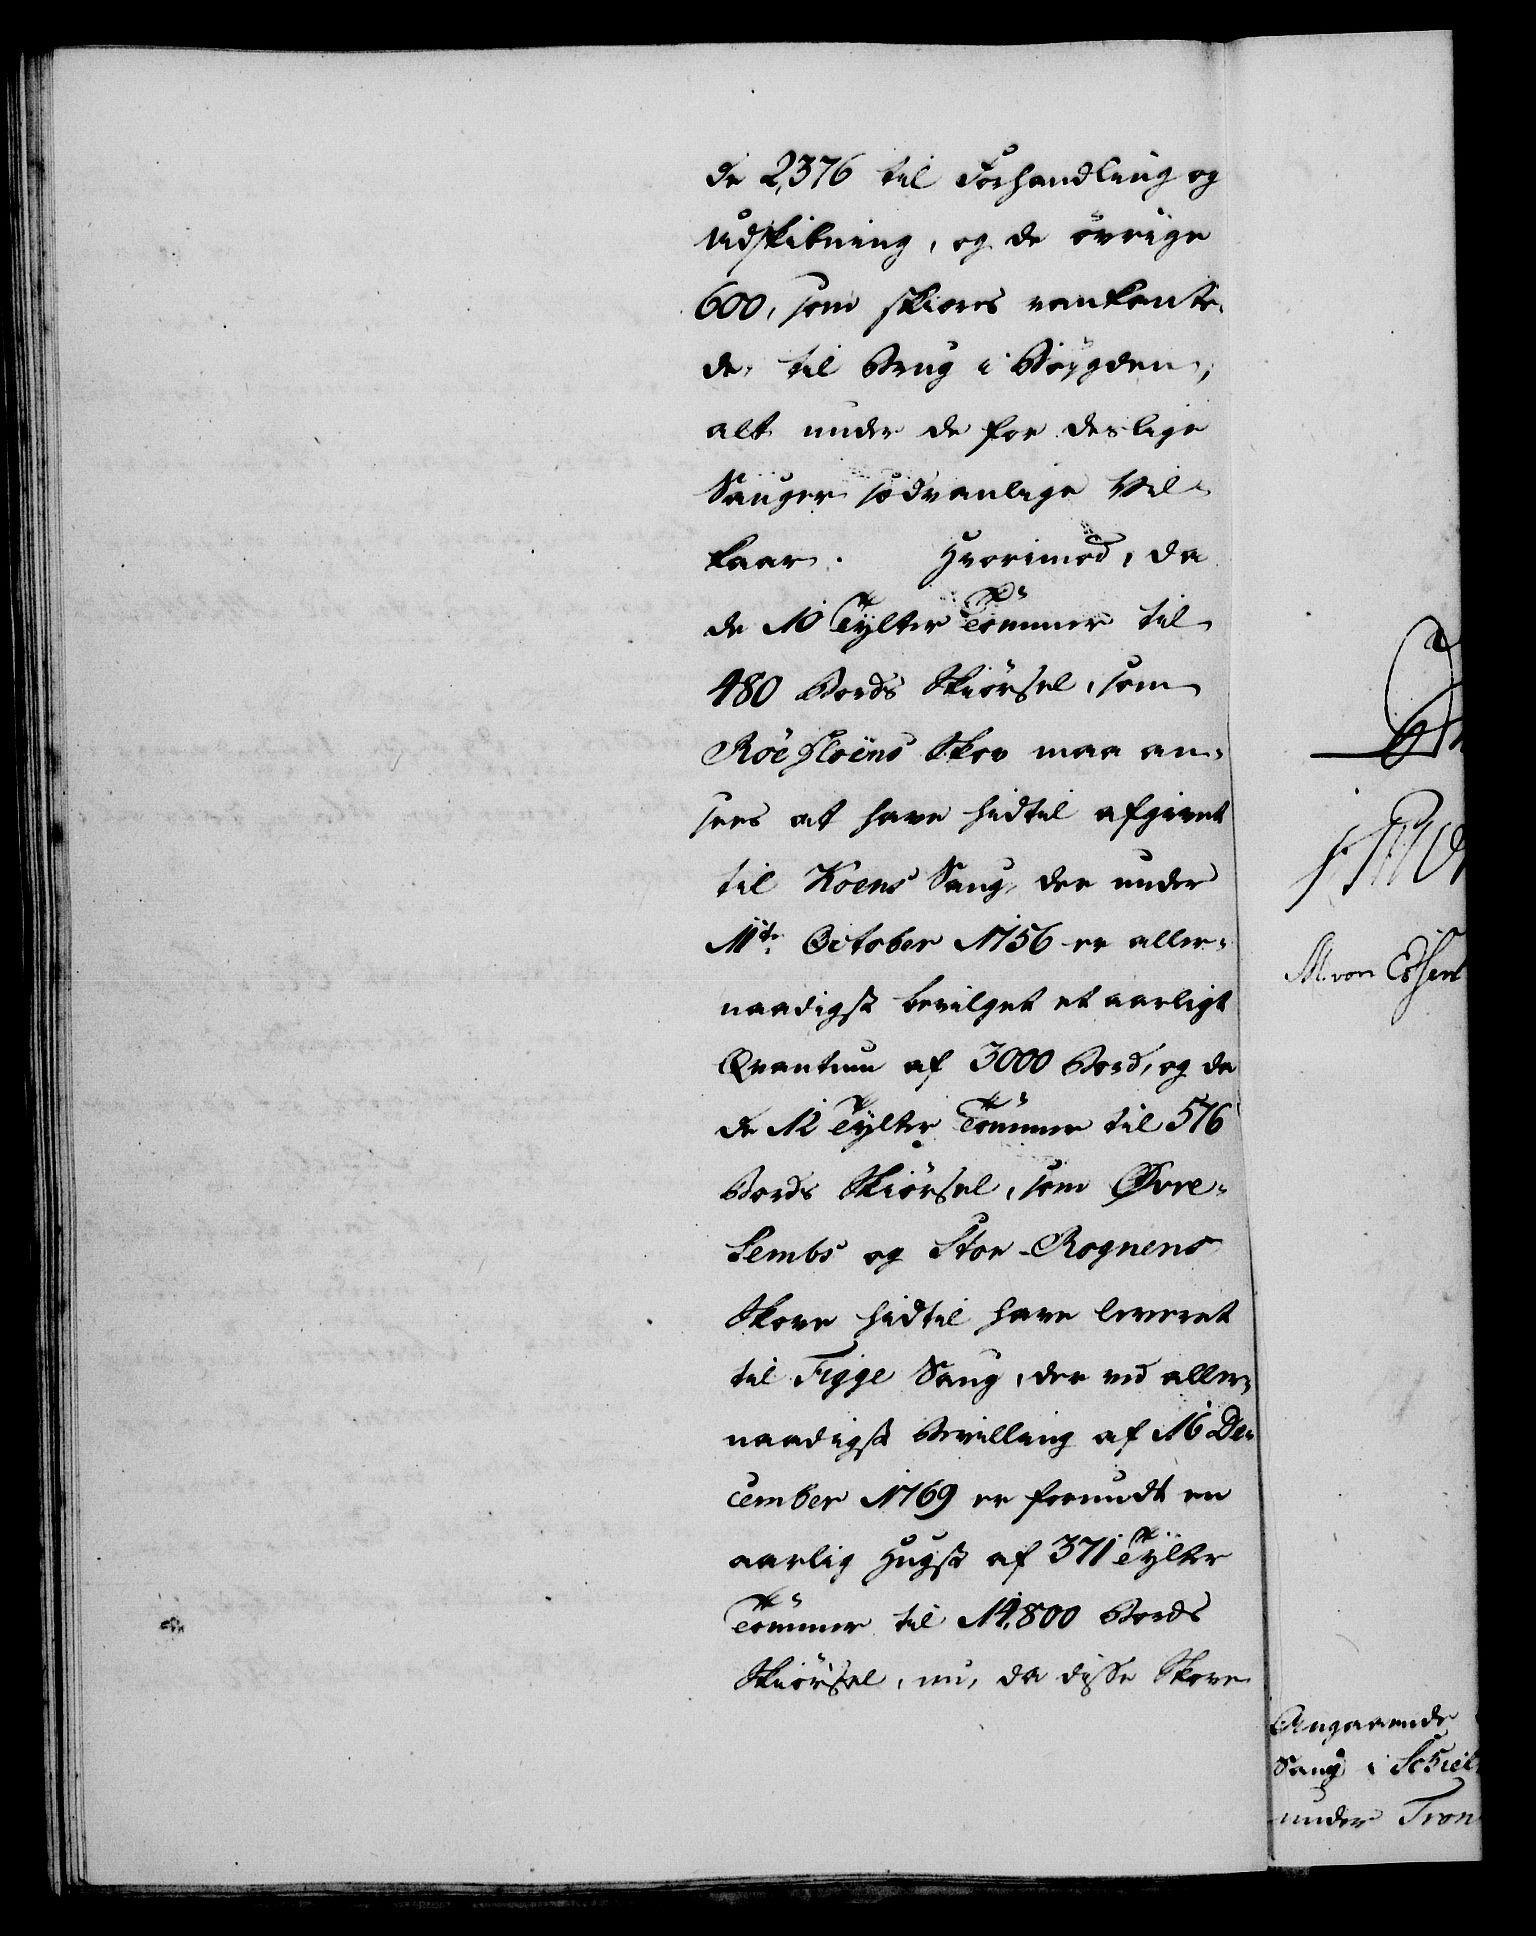 de 2,376 til Forhandling og
Udskibning, og de övrige
600, som skiæres vankante-
de, til Brug i Böygden,
alt under de for deslige
Sauger sædvanlige Vil-
kaar. Hvorimod, da
de 10 Tylter Tömmer til
480 Bords Skiörsel, som
Röe Skov maa an-
sees at have hidtil afgivet
til Koens Saug, der under
11te October 1756 er aller-
naadigst bevilget et aarligt
Qvantum af 3000 Bord, og da
de 12 Tylter Tömmer til 576
Bords Skiörsel, som Övre-
Sembs og Stor-Rognens
Skove hidtil have leveret
til Figge Saug, der ved aller-
naadigst Bevilling af 16 De-
cember 1769 er forundt en
aarlig Hugst af 371 Tylter
Tömmer til 14,800 Bords
Skiörsel, nu, da disse Skove
M. von Essen
Angaaende
Saug i
under Tron